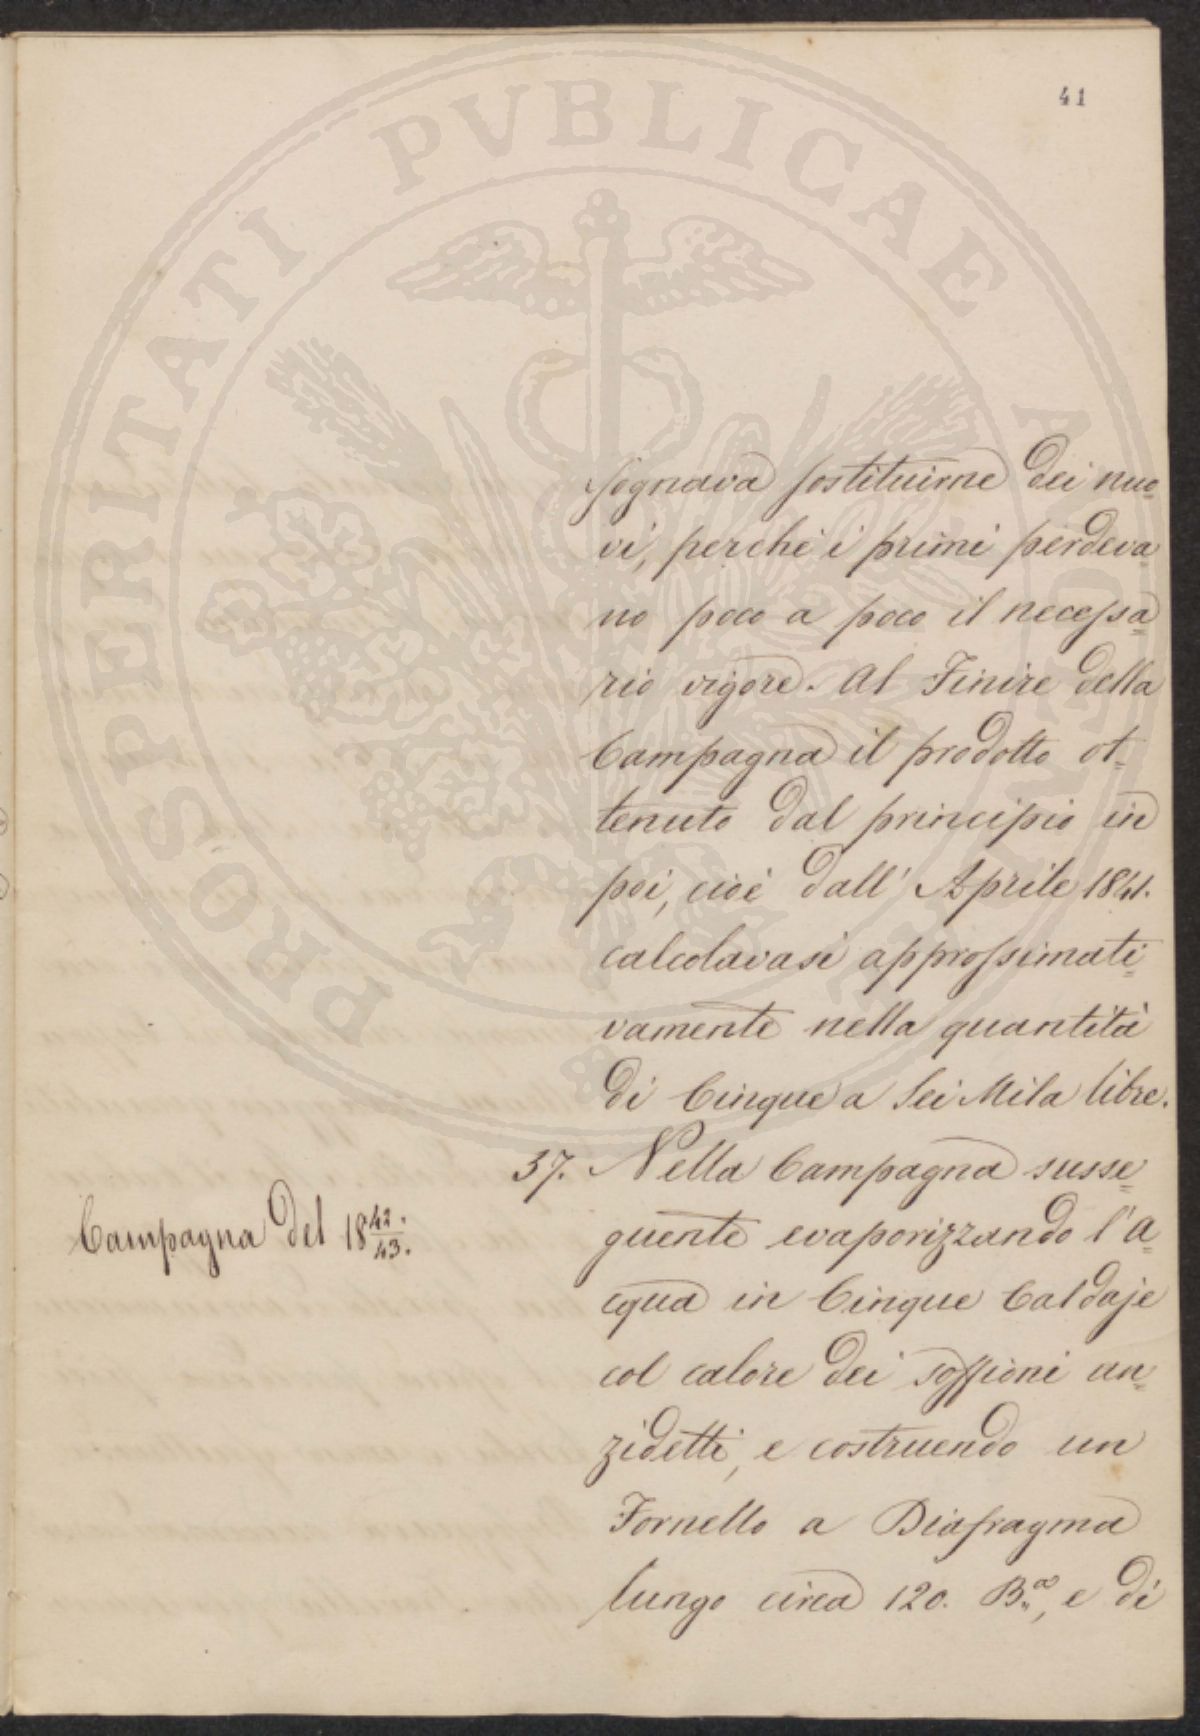 41
sognava sostituirne dei nuo=
vi, perchè i primi perdeva=
no poco a poco il necessa=
rio vigore. Al Finire della
Campagna il prodotto ot=
tenuto dal principio in
poi, cioè dall' Aprile 1841.
calcolavasi approssimati=
vamente nella quantità
di Cinque a Sei Mila libre.
37. Nella Campagna susse=
Campagna del 18 42/43.
guente evaporizzando l'a=
cqua in Cinque Caldaje
col calore dei soffioni an=
zidetti, e costruendo un
Fornello a Diafragma
lungo circa 120. B.a, e di
PROSPERITATI PVBLICAE